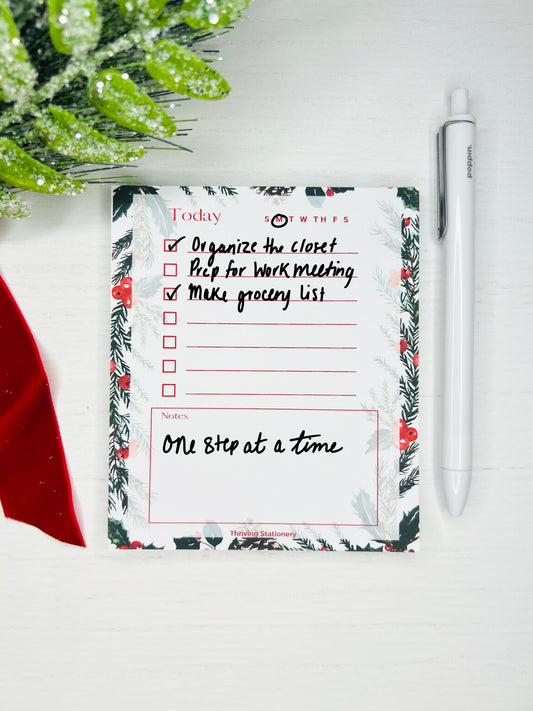 Today S M T W TH F S
Organize the closet
Prep for work meeting
Make grocery list
Notes
One step at a time
Thriving Stationery
poppin.